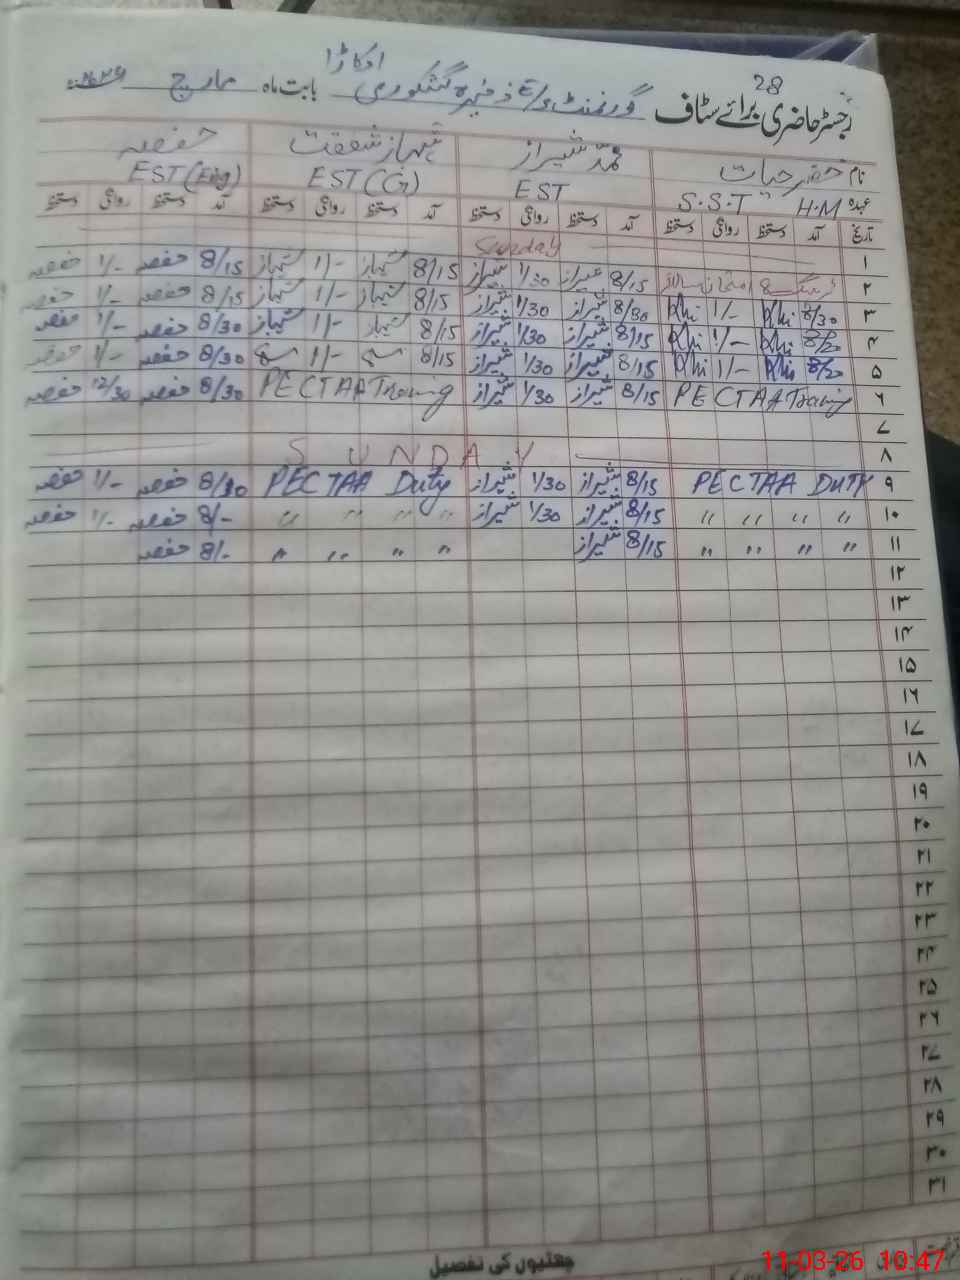 28
رجسٹر حاضری برائے سٹاف گورنمنٹ بابت ماہ مارچ
اوکاڑا
نام خضر حیات محمد شیراز شہباز شفقت حفصہ
عہدہ H.M S.S.T EST EST (CG) EST (Eng)
تاریخ آمد دستخط روانگی دستخط آمد دستخط روانگی دستخط آمد دستخط روانگی دستخط آمد دستخط روانگی دستخط
۱ Sunday
۲ 8/15 شیراز 1/30 شیراز 8/15 شہباز 1/- شہباز 8/15 حفصہ 1/- حفصہ
۳ 8/30 Khi 1/- Khi 8/30 شیراز 1/30 شیراز 8/15 شہباز 1/- شہباز 8/15 حفصہ 1/- حفصہ
۴ Khi 1/- Khi 8/15 شیراز 1/30 شیراز 8/15 شہباز 1/- شہباز 8/30 حفصہ 1/- حفصہ
۵ Khi 1/- Khi 8/15 شیراز 1/30 شیراز 8/15 1/- 8/30 حفصہ 1/- حفصہ
۶ PECTAA Training 8/15 شیراز 1/30 شیراز PECTAA Training 8/30 حفصہ 12/30 حفصہ
۷
۸ SUNDAY
۹ PECTAA DUTY 8/15 شیراز 1/30 شیراز PECTAA Duty 8/30 حفصہ 1/- حفصہ
۱۰ " " " " 8/15 شیراز 1/30 شیراز " " " " 8/- حفصہ 1/- حفصہ
۱۱ " " " " 8/15 شیراز " " " " 8/- حفصہ
۱۲
۱۳
۱۴
۱۵
۱۶
۱۷
۱۸
۱۹
۲۰
۲۱
۲۲
۲۳
۲۴
۲۵
۲۶
۲۷
۲۸
۲۹
۳۰
۳۱
چھٹیوں کی تفصیل
11-03-26 10:47